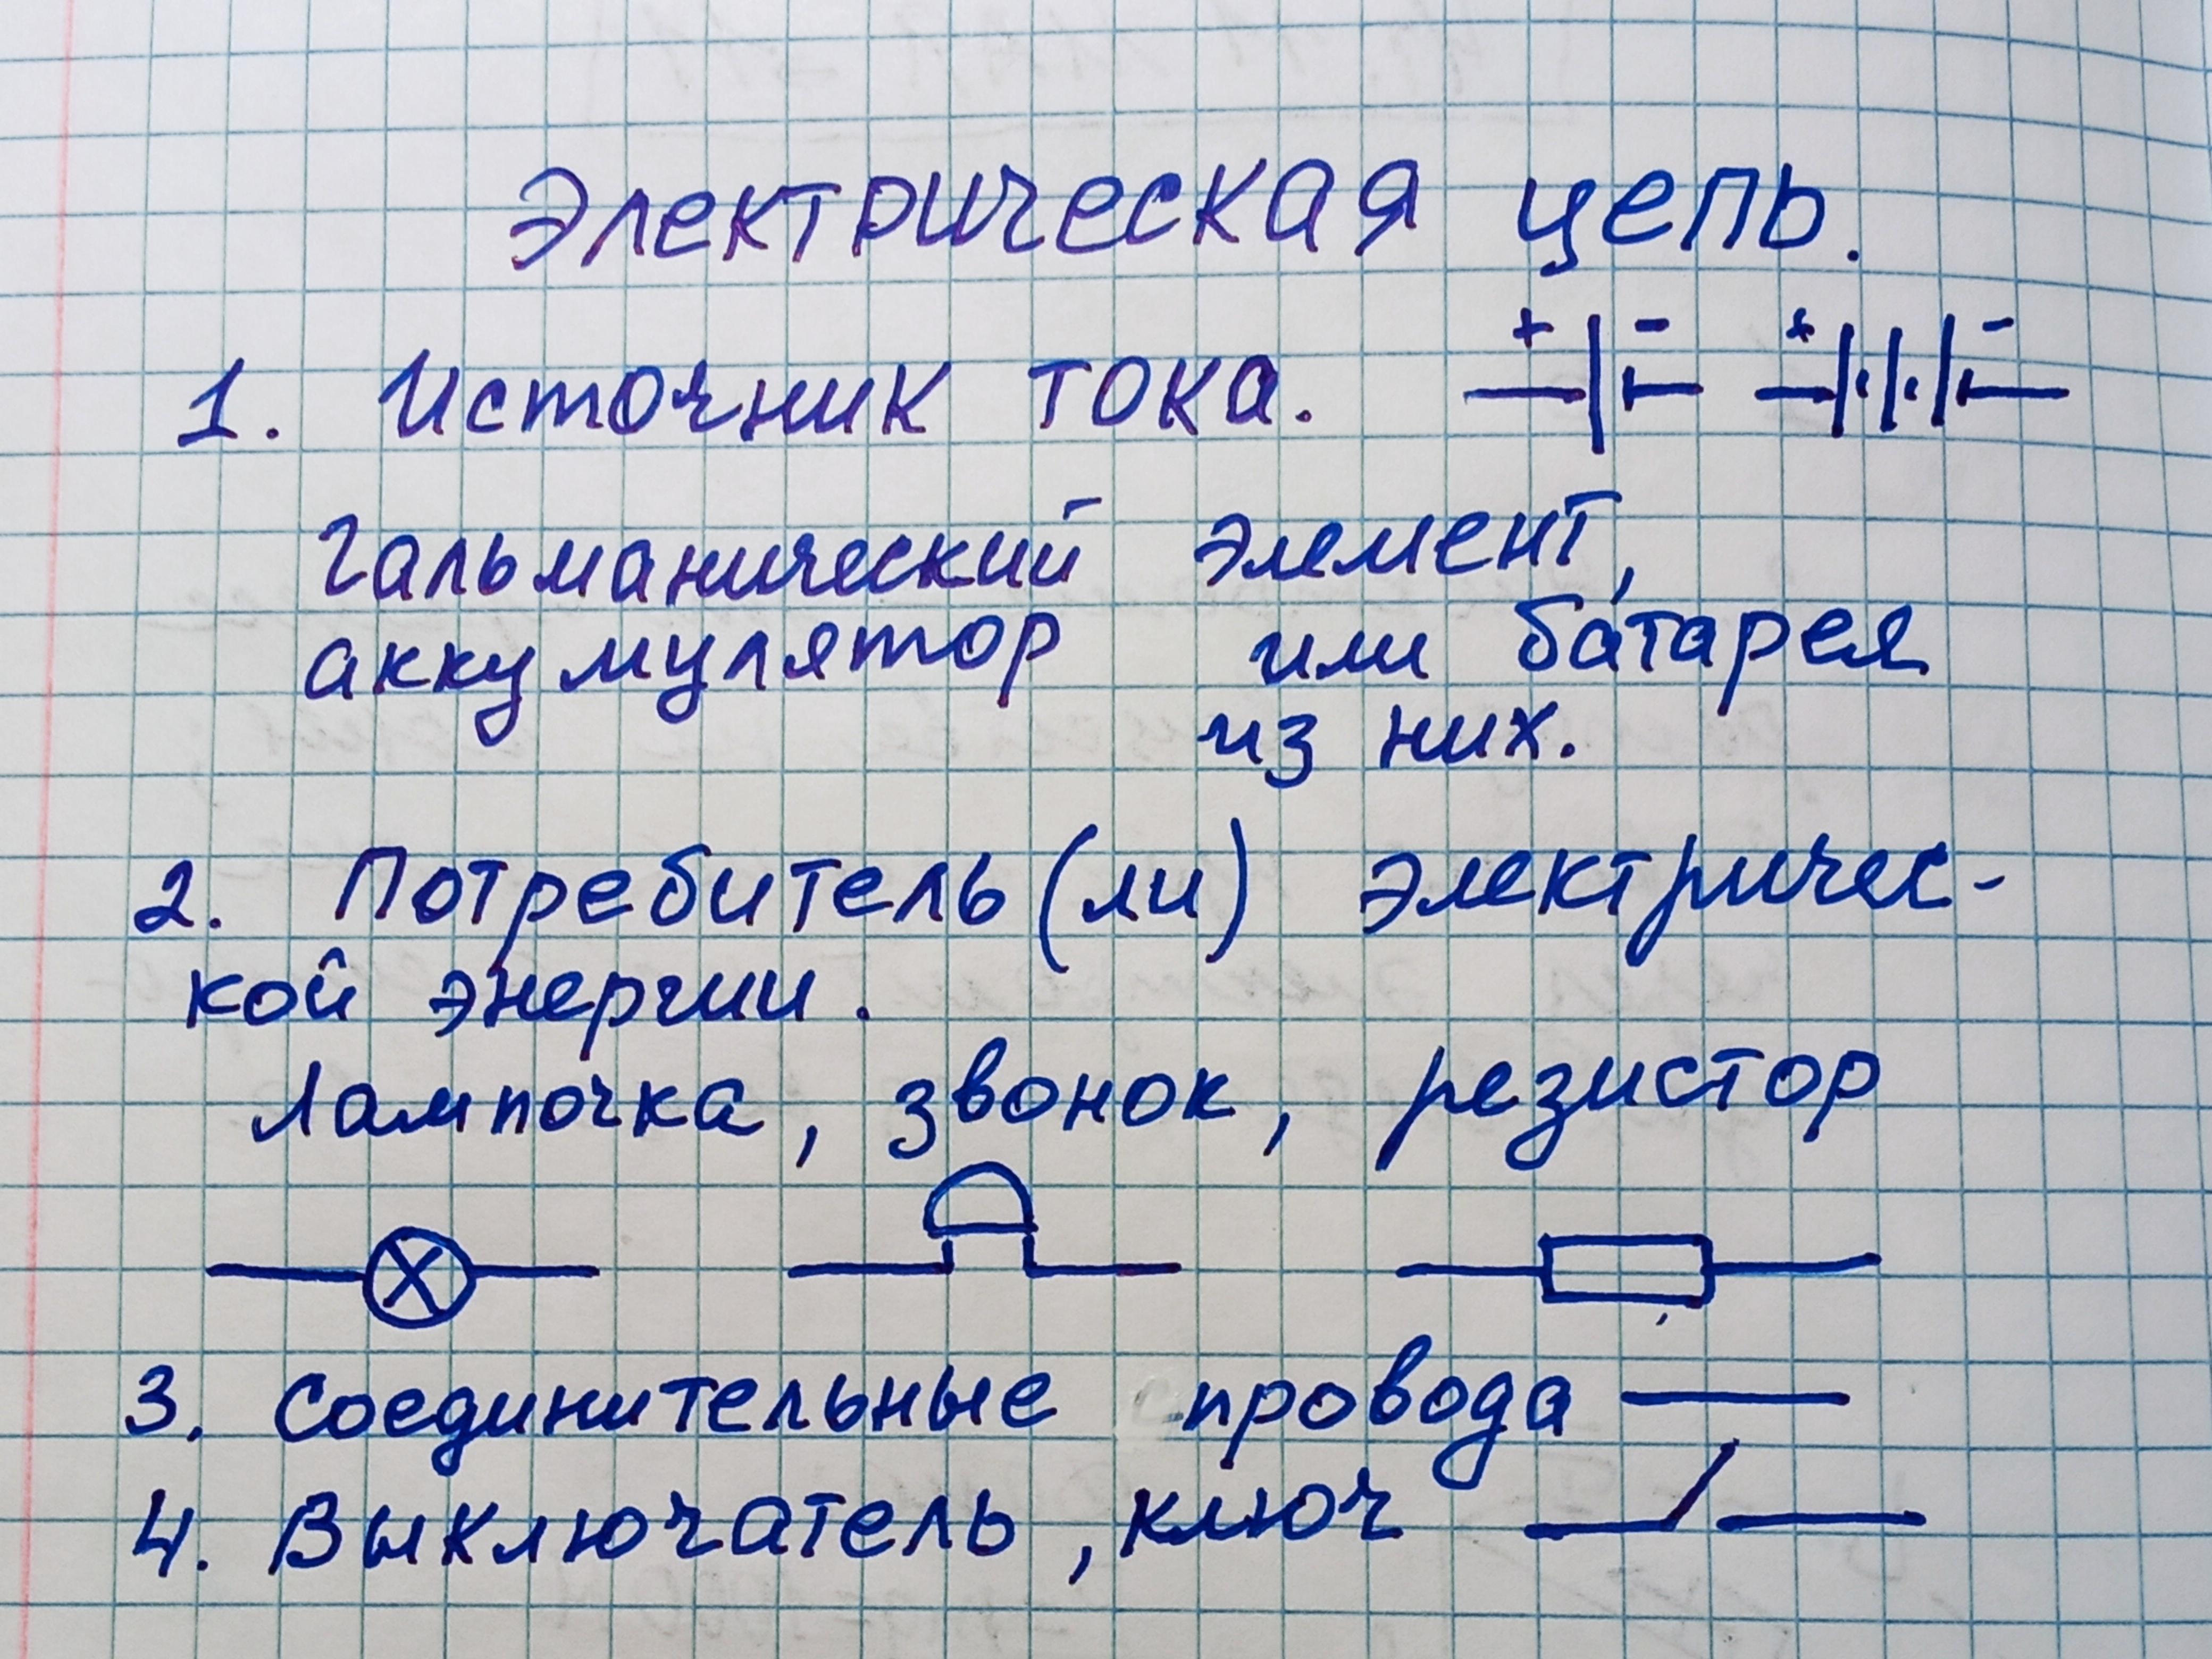 Электрическая цепь.
1. Источник тока. + - + -
Гальманический элемент,
аккумулятор или батарея
из них.
2. Потребитель (ли) электричес-
кой энергии.
Лампочка, звонок, резистор
3. Соединительные провода
4. Выключатель, ключ